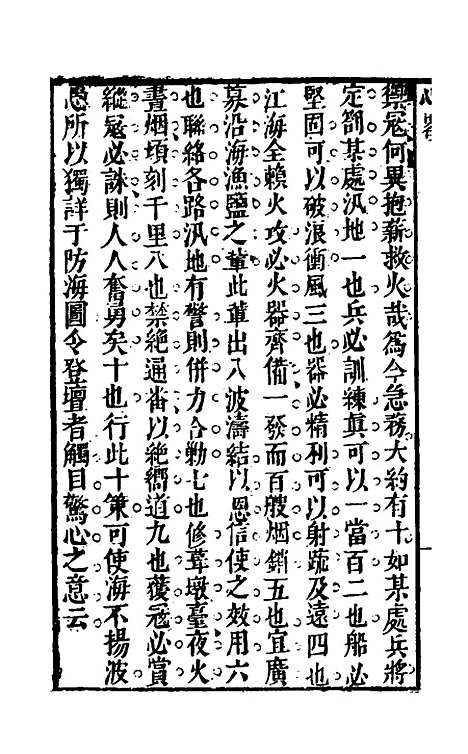 心畧
禦冦何異抱薪救火哉為今急務大約有十如某處兵將
定劄某處汛地一也兵必訓練真可以一當百二也船必
堅固可以破浪衝風三也器必精利可以射疏及遠四也
江海全賴火攻必火器齊備一發而百艘烟銷五也宜廣
募沿海漁鹽之軰此軰出入波濤結以恩信使之效用六
也聯絡各路汛地有警則併力合勦七也修葺墩臺夜火
晝烟頃刻千里八也禁絶通畨以絶嚮道九也獲冦必賞
縱冦必誅則人人奮勇矣十也行此十策可使海不揚波
愚所以獨詳于防海圖令登壇者觸目驚心之意云